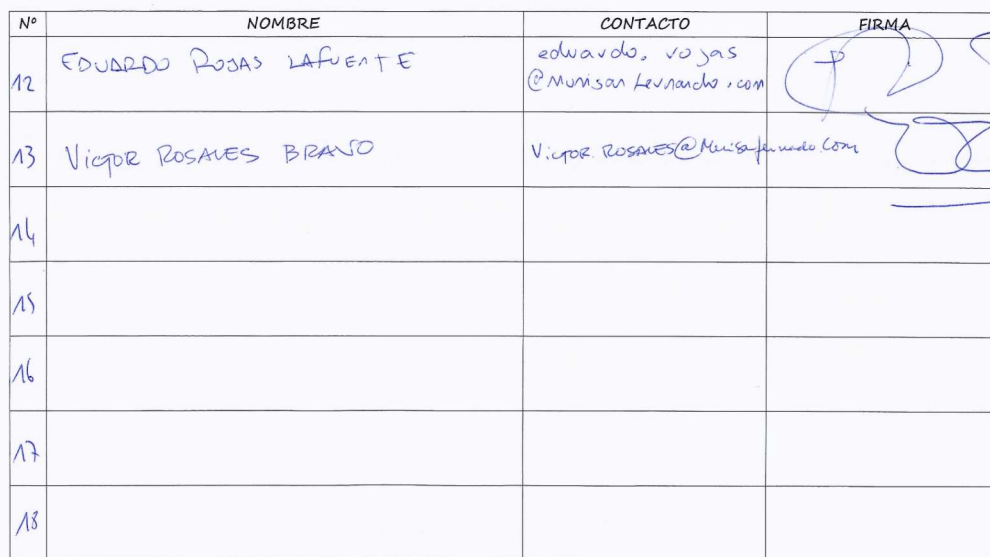 Nº NOMBRE CONTACTO FIRMA
12 EDUARDO ROJAS LAFUENTE eduardo.rojas
@Munisanfernando.com
13 VICTOR ROSALES BRAVO VICTOR.ROSALES@Munisanfernando.com
14
15
16
17
18